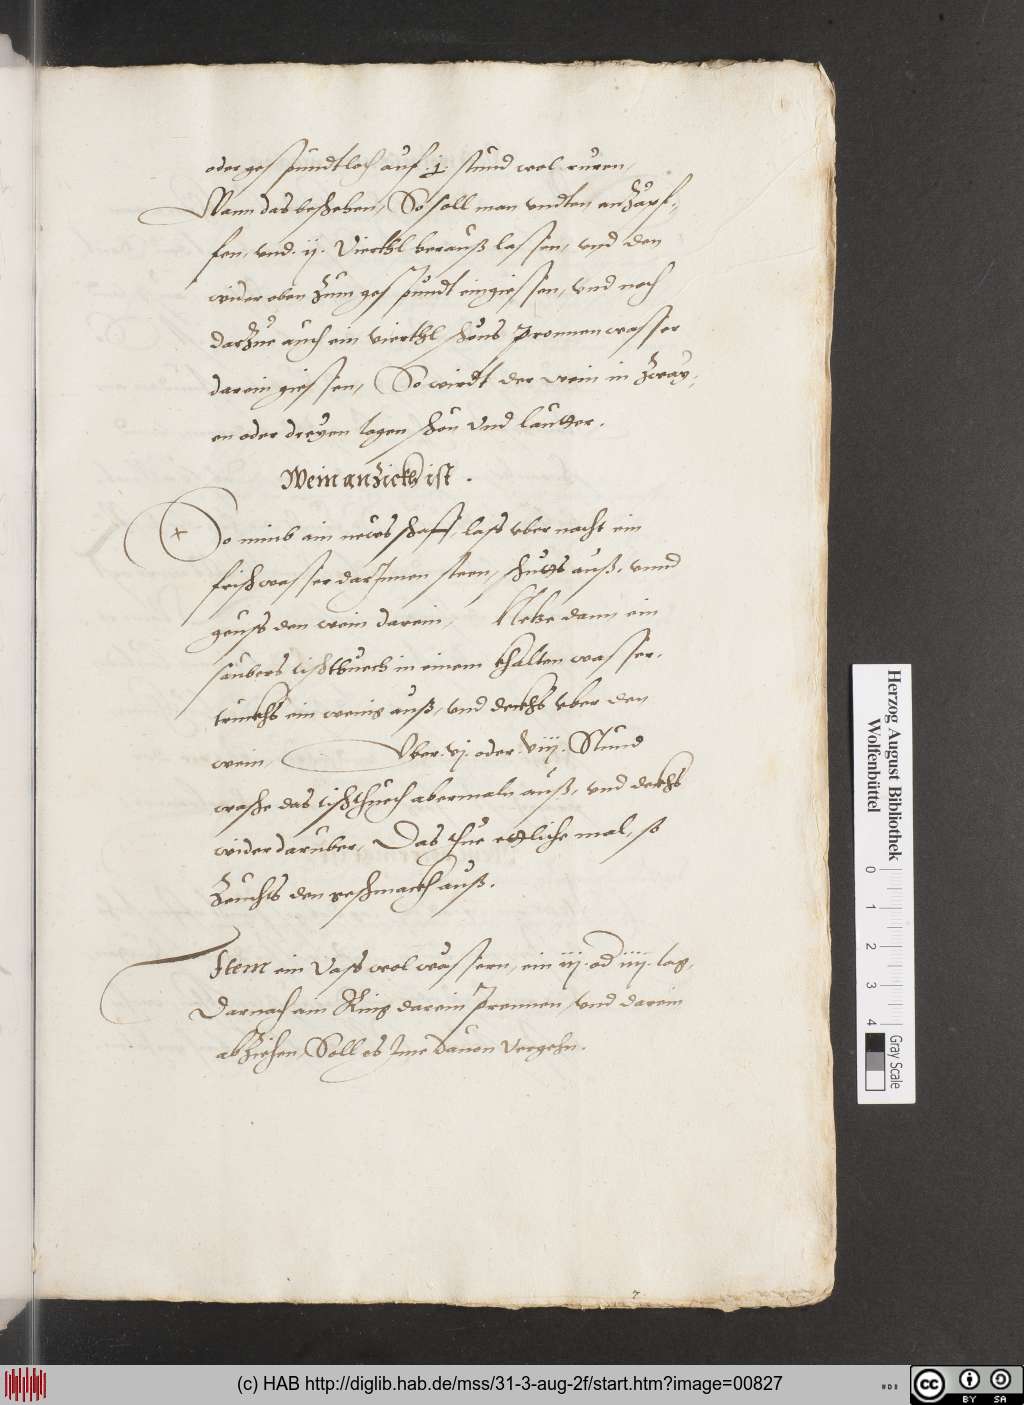 oder ges pundtloch auf .j. stund wol ruren,
Wann das beschehen, So soll man vndten anzäpf-
fen, vnd .ij. Viertl herauß lassen, vnd den
wider oben zum ges pundt eingiessen, vnd noch
darzue auch ein Viertl schöns Pronnenwasser
darein giessen, So wirdt der wein in zway-
en oder dreyen tagen schön vnd lautter.
Wein anzickh ist.
So nimb ain newes schaff, lass vber nacht ein
frisch wasser darInnen steen, schutts auß, vnnd
geuss den wein darein, Netze dann ein
saubers tischtuech in einem khalten wasser,
truckhs ein wenig auß, vnd deckhs vber den
wein, Vber .vj. oder .viij. Stund
wasche das tischthuech abermaln auß, vnd deckhs
wider darüber, Das thue ettliche mal, so
zeuchts den geschmackh auß.
Item ein Vass wol wässern, ein iij. od iiij. tag,
Darnach ain Ring darein Prennen, vnd darein
abziehen, Soll es Ime dauon Vergehn.
Herzog August Bibliothek
Wolfenbüttel
0 1 2 3 4
Gray Scale
(c) HAB http://diglib.hab.de/mss/31-3-aug-2f/start.htm?image=00827
cc BY SA